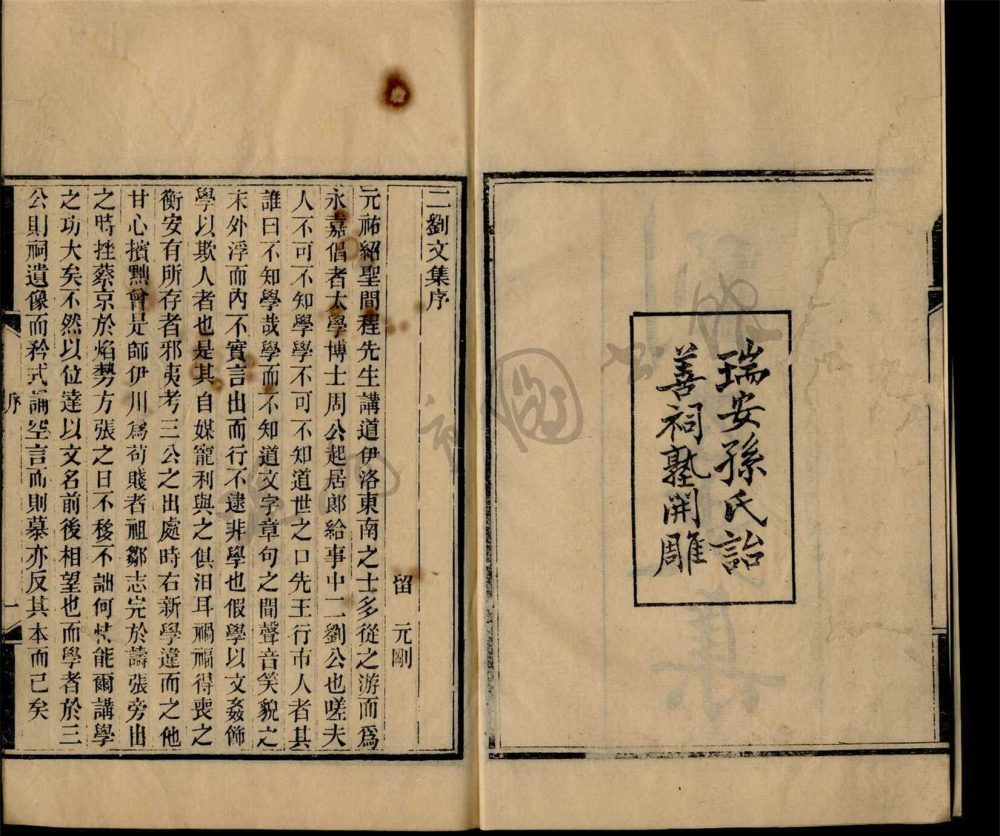 瑞安孫氏詒
善祠塾開雕
二劉文集序
留　元剛
元祐紹聖間程先生講道伊洛東南之士多從之游而爲
永嘉倡者太學博士周公起居郎給事中二劉公也嗟夫
人不可不知學學不可不知道世之口先王行市人者其
誰曰不知學哉學而不知道文字章句之間聲音笑貌之
末外浮而內不實言出而行不逮非學也假學以文姦飾
學以欺人者也是其自媒寵利與之俱汨耳禍福得喪之
衡安有所存者邪夷考三公之出處時右新學違而之他
甘心擯黜曾是師伊川爲苟賤者祖鄒志完於譸張旁出
之時挫蔡京於焰勢方張之日不移不詘何其能爾講學
之功大矣不然以位達以文名前後相望也而學者於三
公則祠遺像而矜式誦空言而則慕亦反其本而已矣
序
一